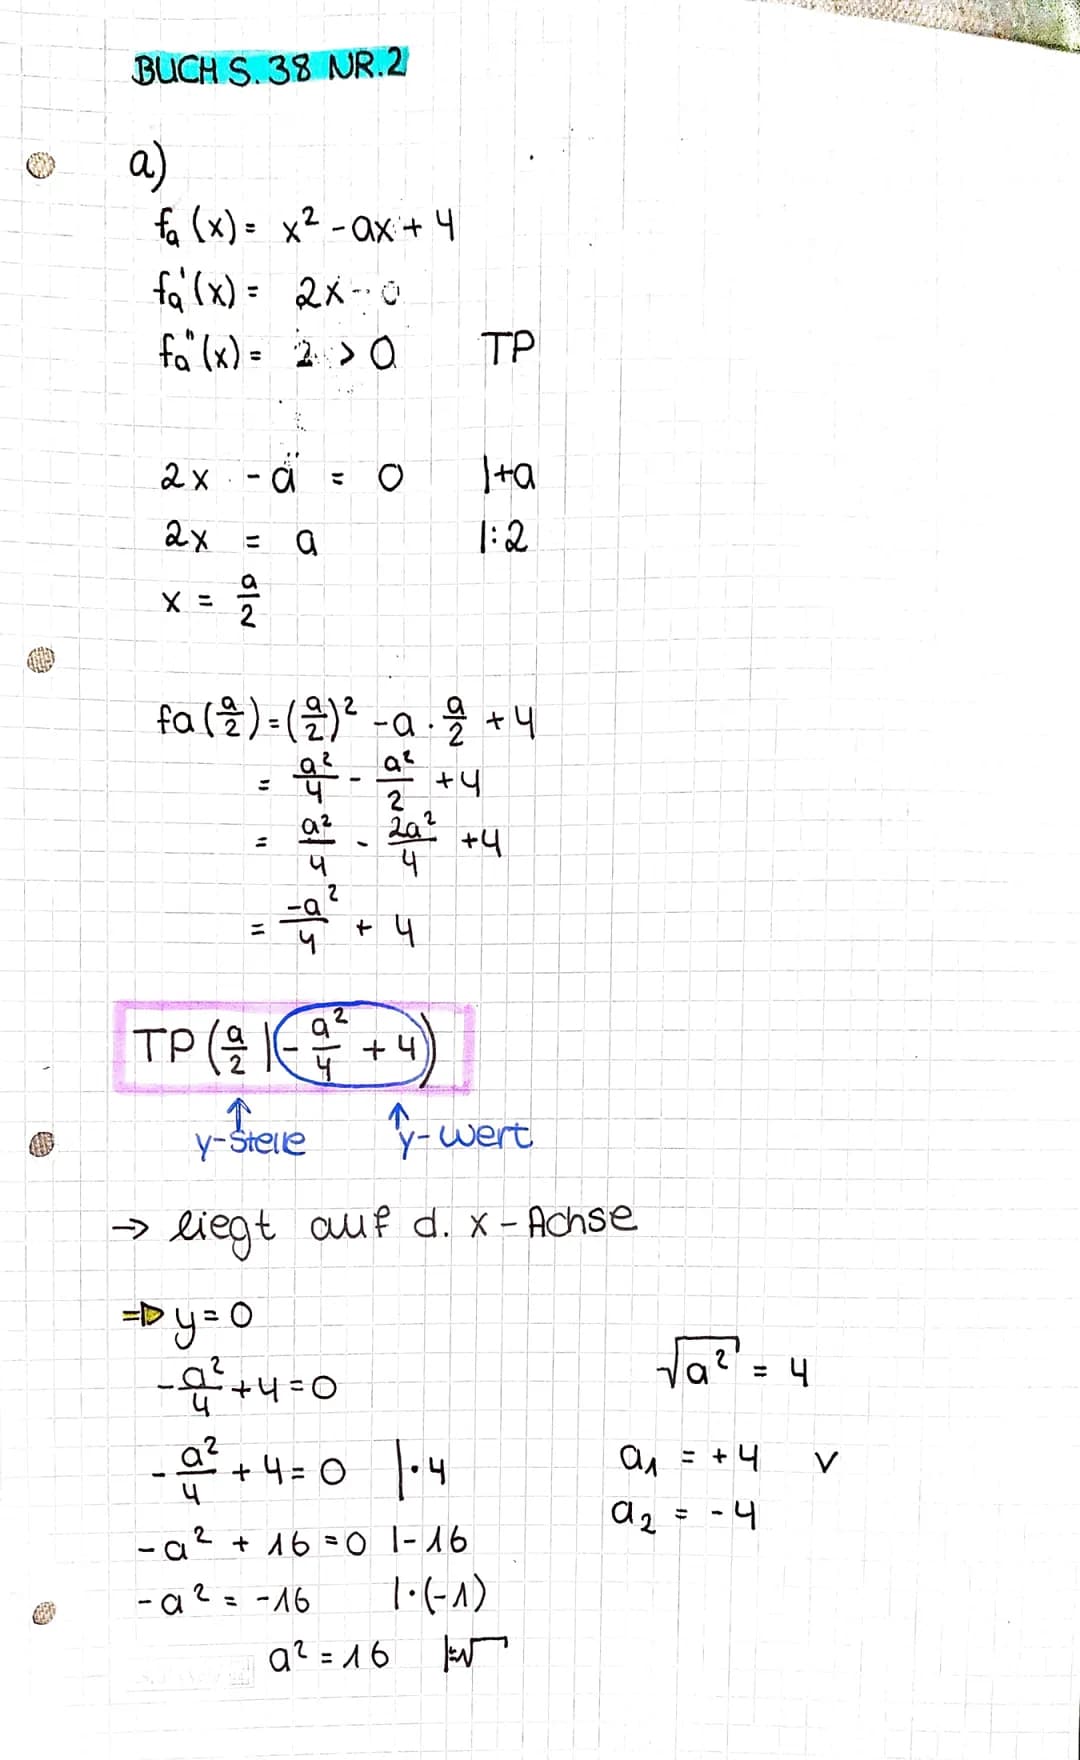 BUCH S. 38 NR. 2
a)
fₐ(x) = x² - ax + 4
fₐ'(x) = 2x -
fₐ"(x) = 2 > 0 TP
2x - a = 0 |+a
2x = a |:2
x = a/2
fa(a/2) = (a/2)² - a · a/2 + 4
= a²/4 - a²/2 + 4
= a²/4 - 2a²/4 + 4
= -a²/4 + 4
TP (a/2 | - a²/4 + 4)
y-Stelle y-wert
→ liegt auf d. x-Achse
⇒ y = 0
- a²/4 + 4 = 0
- a²/4 + 4 = 0 | · 4
- a² + 16 = 0 |-16
- a² = -16 | · (-1)
a² = 16 | ±√
√a² = 4
a₁ = +4 v
a₂ = -4